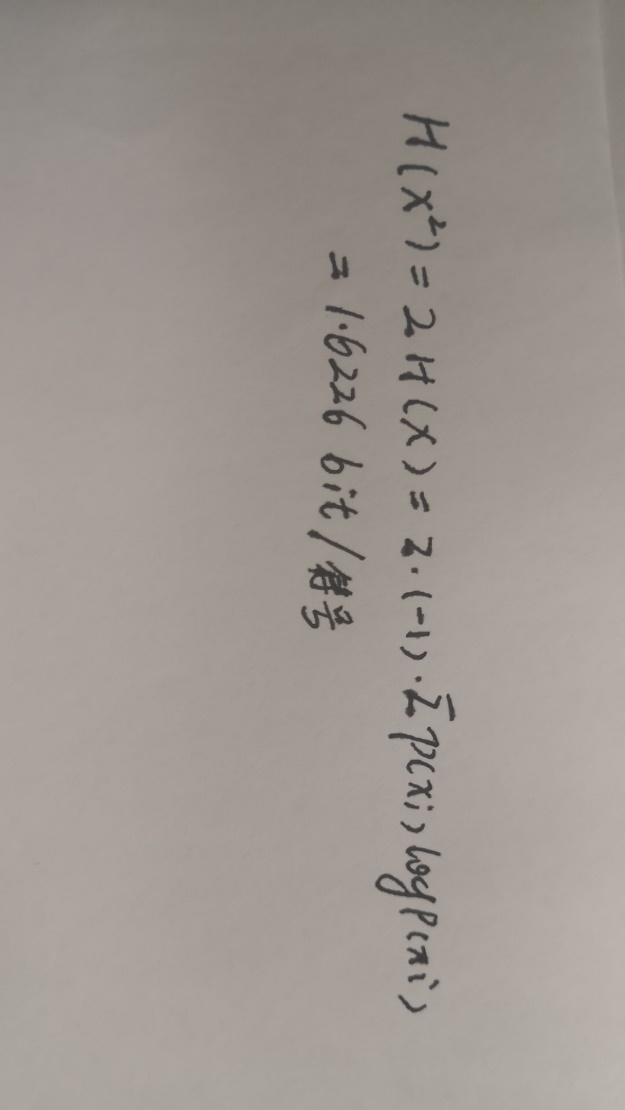 H(X²) = 2H(X) = 2·(-1)·Σp(xi)logp(xi)
= 1.6226 bit/符号